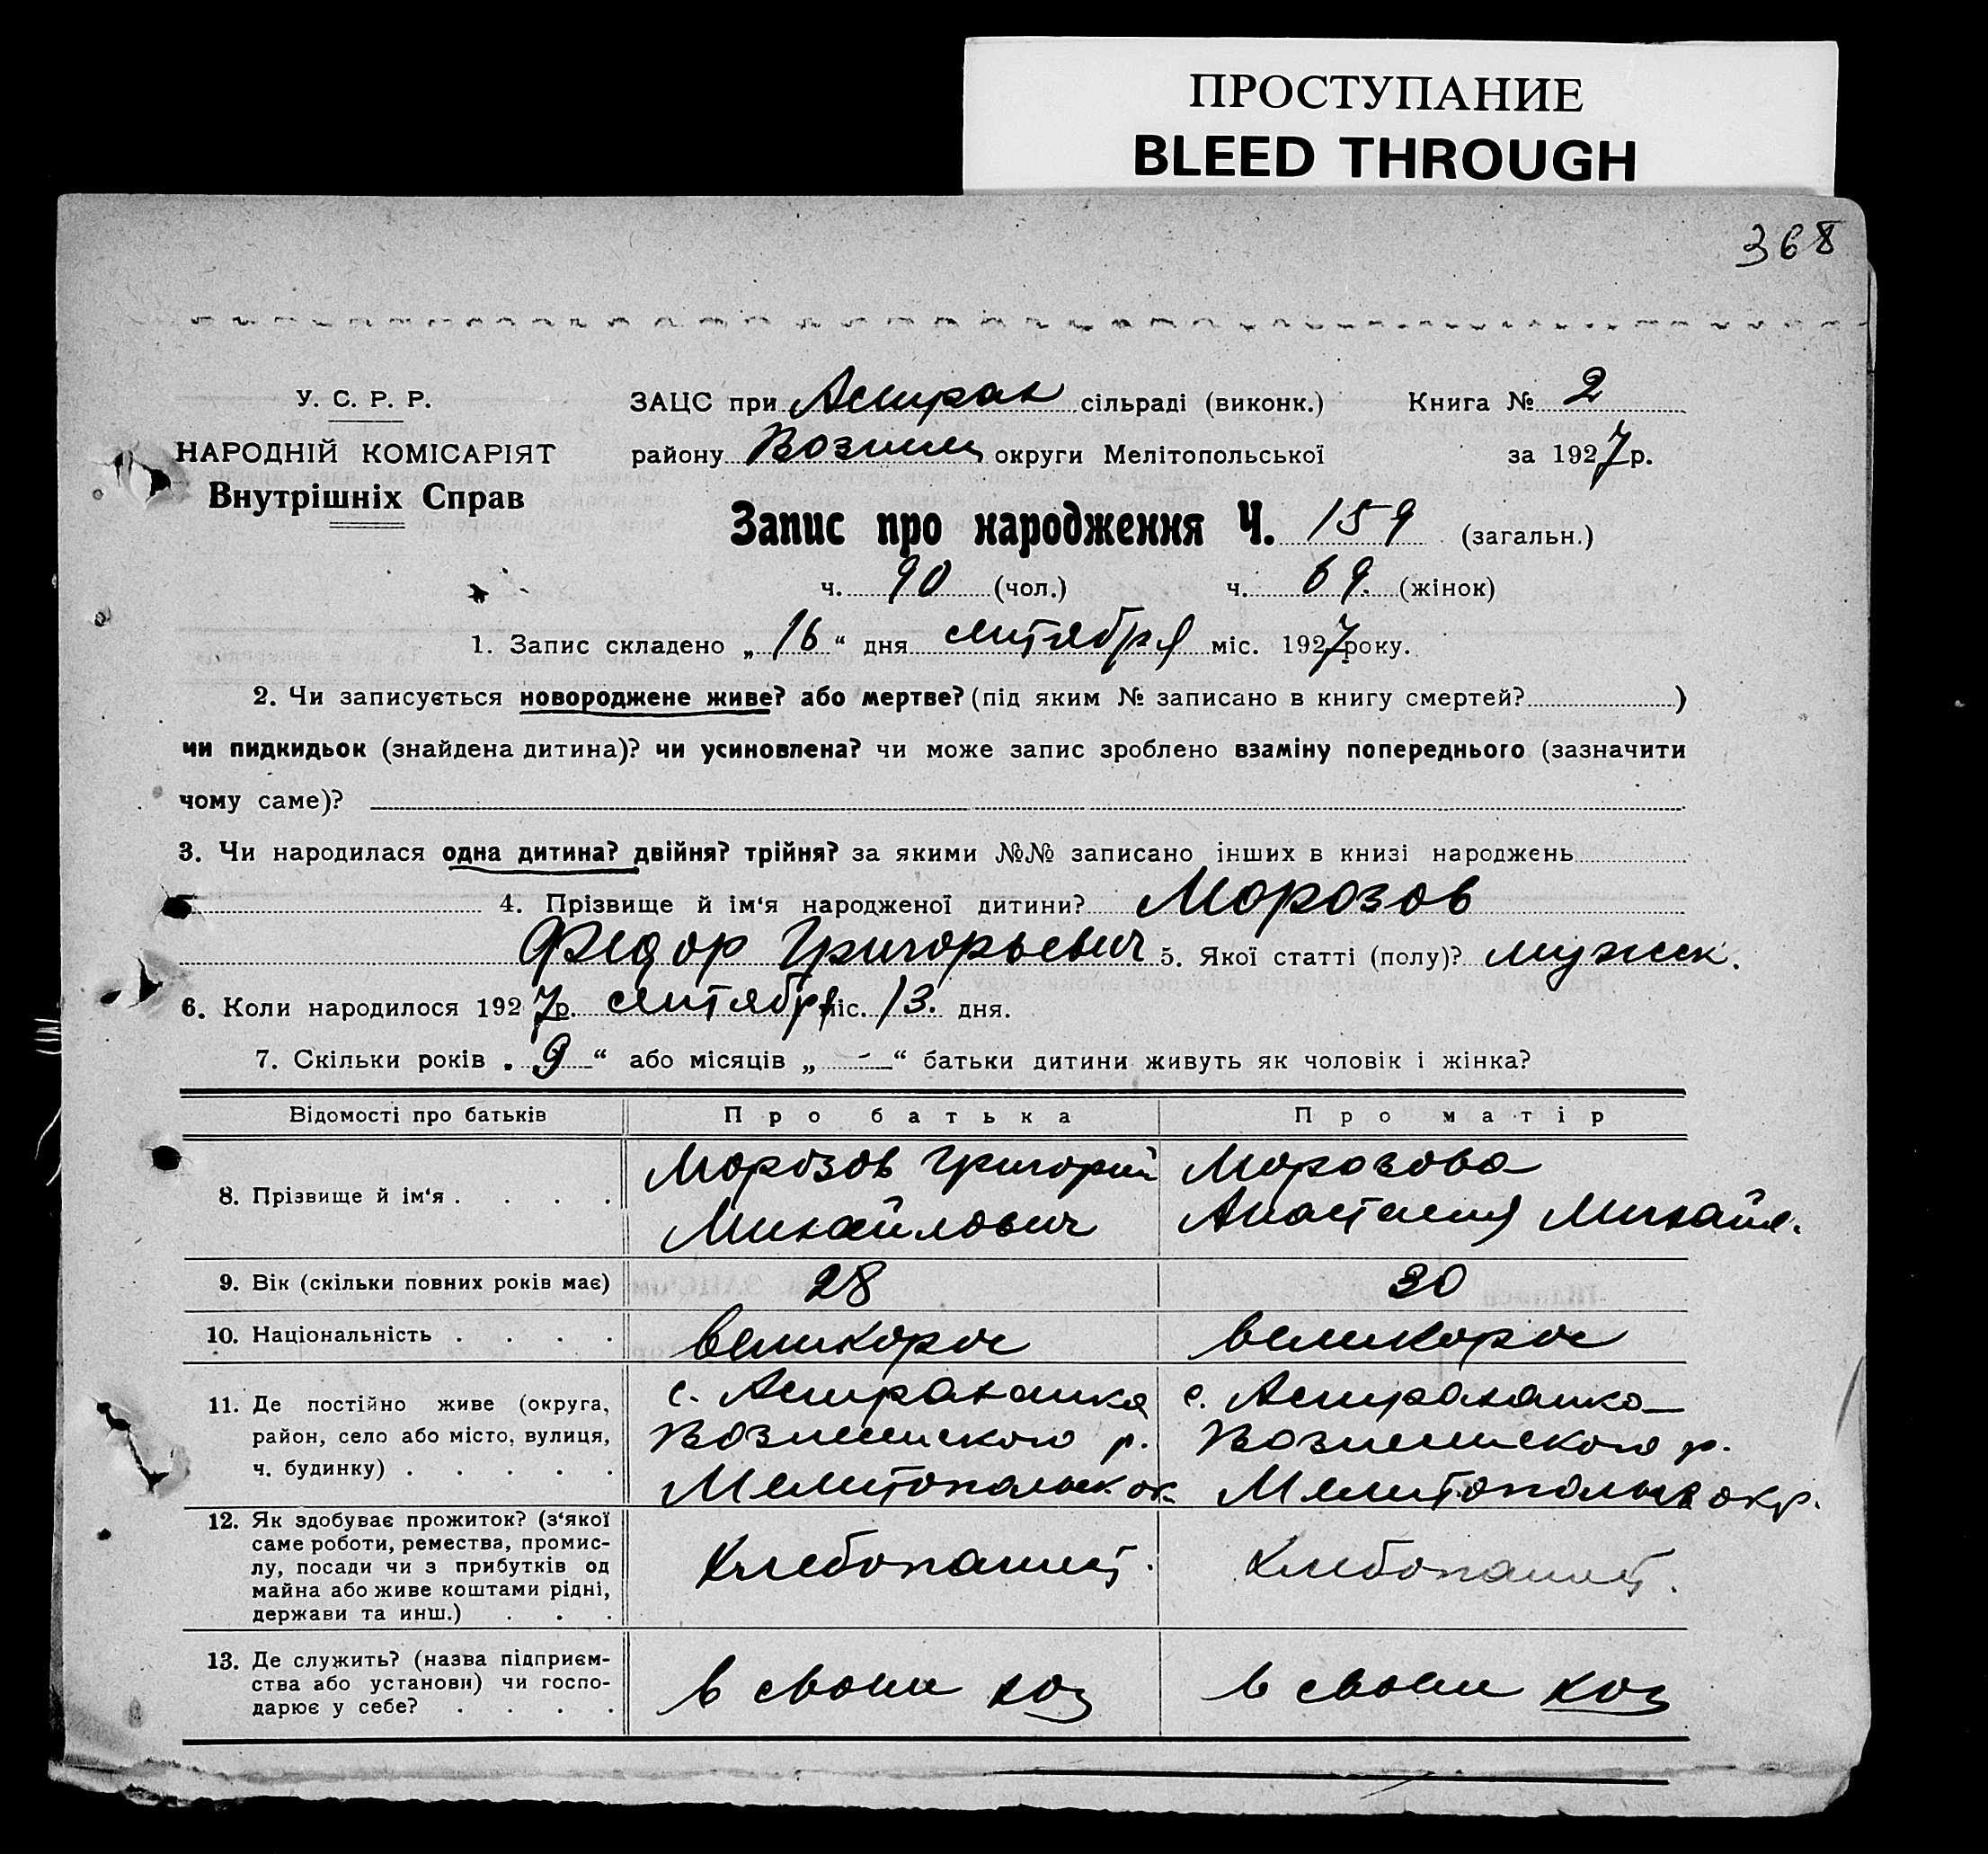 ПРОСТУПАНИЕ
BLEED THROUGH
368
У. С. Р. Р.
НАРОДНІЙ КОМІСАРІЯТ
Внутрішніх Справ
ЗАЦС при Астрах сільраді (виконк.) Книга № 2
району Вознес округи Мелітопольської за 1927 р.
Запис про народження Ч. 159 (загальн.)
ч. 90 (чол.) ч. 69. (жінок)
1. Запис складено „ 16 “ дня сентября міс. 1927 року.
2. Чи записується новороджене живе? або мертве? (під яким № записано в книгу смертей? )
чи пидкидьок (знайдена дитина)? чи усиновлена? чи може запис зроблено взаміну попереднього (зазначити
чому саме)?
3. Чи народилася одна дитина? двійня? трійня? за якими №№ записано інших в книзі народжень
4. Прізвище й ім‘я народженої дитини? Морозов
Федор Григорьевич 5. Якої статті (полу)? мужск.
6. Коли народилося 1927 р. сентября міс. 13. дня.
7. Скільки років „ 9 “ або місяців „ - “ батьки дитини живуть як чоловік і жінка?
Відомості про батьків Про батька Про матір
8. Прізвище й ім‘я . . . .
Морозов Григорий
Михайлович
Морозова
Анастасия Михайл.
9. Вік (скільки повних років має) 28 30
10. Національність . . . . великорос великорос
11. Де постійно живе (округа,
район, село або місто, вулиця,
ч. будинку) . . . . .
с. Астраханка
Вознесенского р.
Мелитопольск ок.
с. Астраханка
Вознесенского р.
Мелитопольск окр.
12. Як здобуває прожиток? (з‘якої
саме роботи, ремества, промис-
лу, посади чи з прибутків од
майна або живе коштами рідні,
держави та инш.) . . .
Хлебопашец. Хлебопашец.
13. Де служить? (назва підприєм-
ства або установи) чи госпо-
дарює у себе? . . . .
в своем хоз в своем хоз